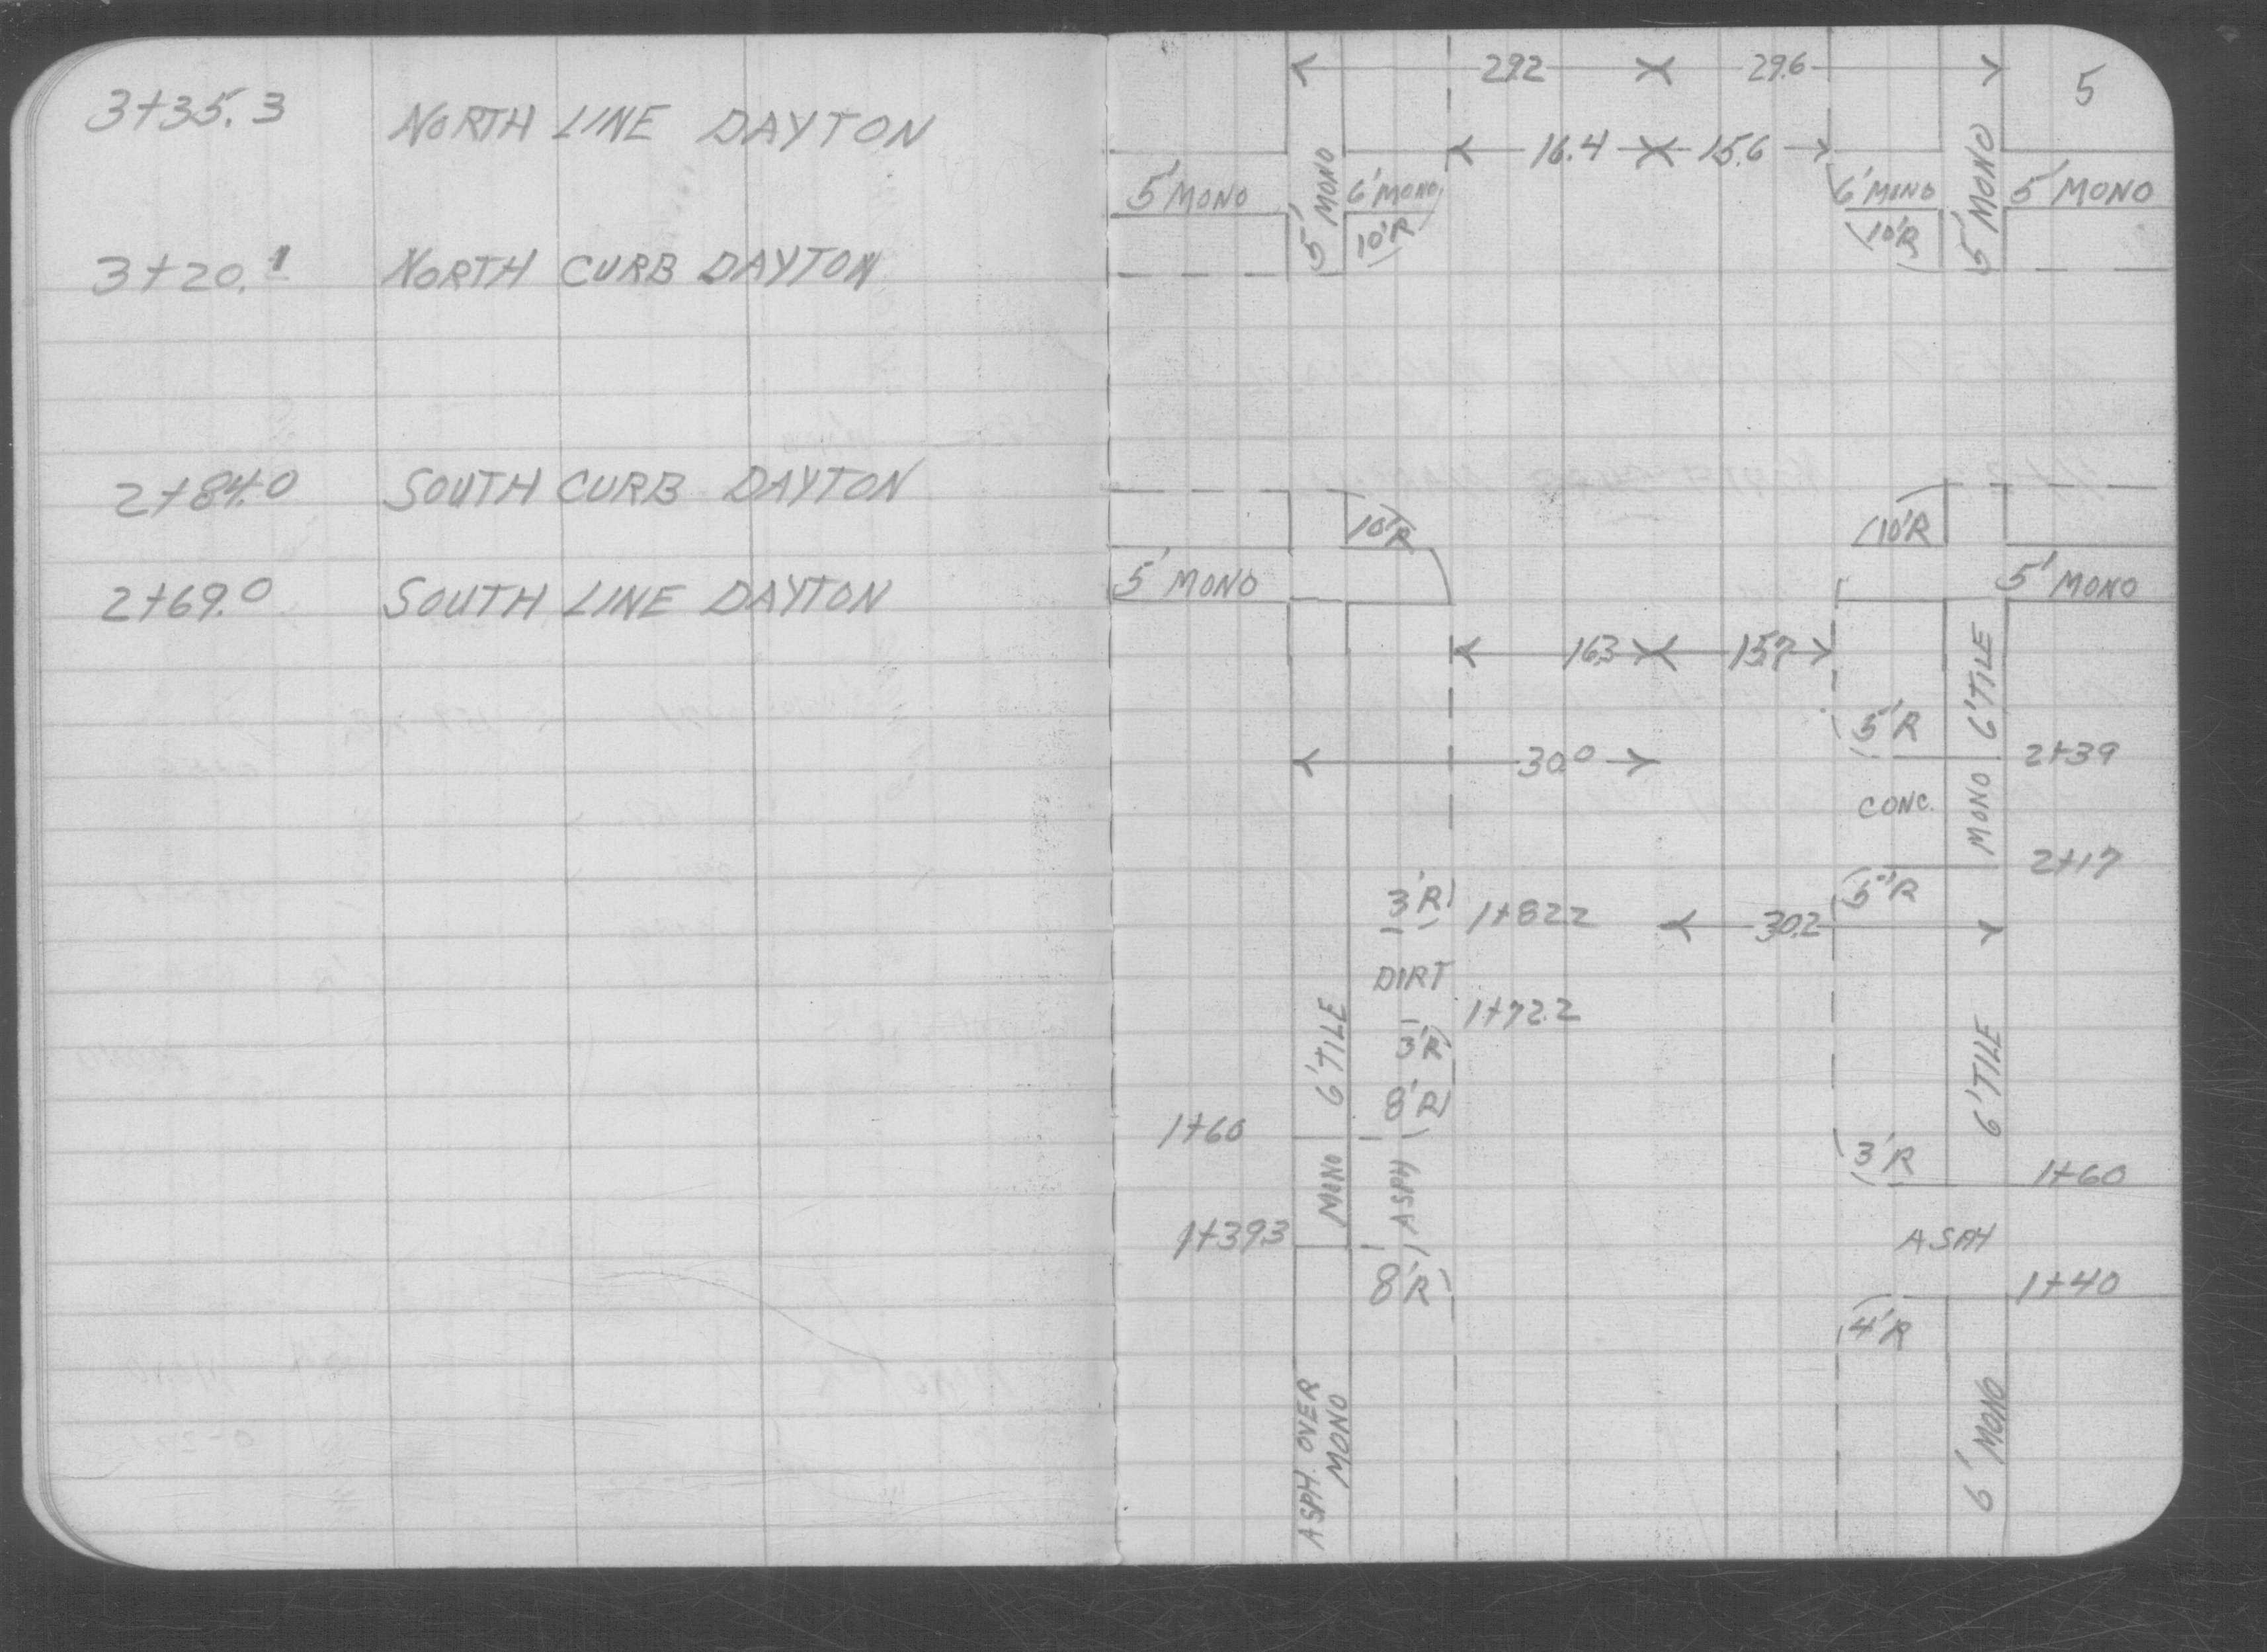 3+35.3 NORTH LINE DAYTON
3+20.1 NORTH CURB DAYTON
2+84.0 SOUTH CURB DAYTON
2+69.0 SOUTH LINE DAYTON
29.2 29.6
5
16.4 15.6
5' MONO 5' MONO 6' MONO 6' MONO 5' MONO 5' MONO
10'R 10'R
10'R 10'R
5' MONO 5' MONO
16.3 15.7
6' TILE
5'R
30.0 2+39
CONC. MONO
2+17
3'R 1+82.2 5'R
30.2
DIRT
1+72.2
6' TILE 3'R 6' TILE
8'R
1+60
3'R 1+60
MONO ASPH
1+39.3 ASPH
8'R 1+40
4'R
ASPH. OVER
MONO
6' MONO